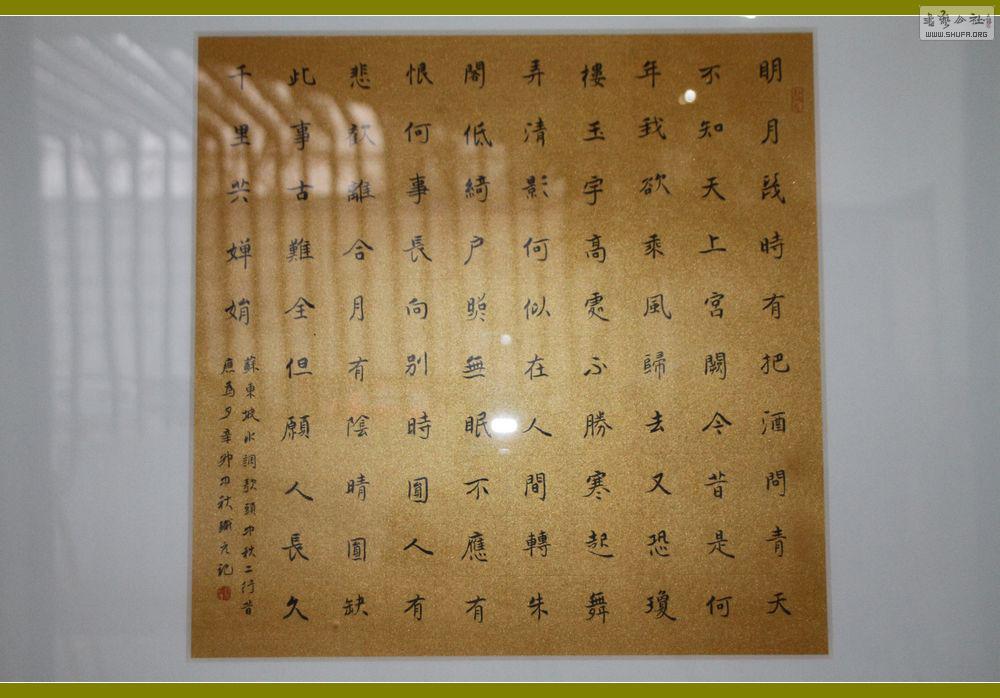 明月幾時有把酒問青天
不知天上宮闕今昔是何
年我欲乘風歸去又恐瓊
樓玉宇高處不勝寒起舞
弄清影何似在人間轉朱
閣低綺户照無眠不應有
恨何事長向別時圓人有
悲歡離合月有陰晴圓缺
此事古難全但願人長久
千里共嬋娟
蘇東坡水調歌頭中秋二行昔
應為夕辛卯中秋元記
WWW.SHUFA.ORG